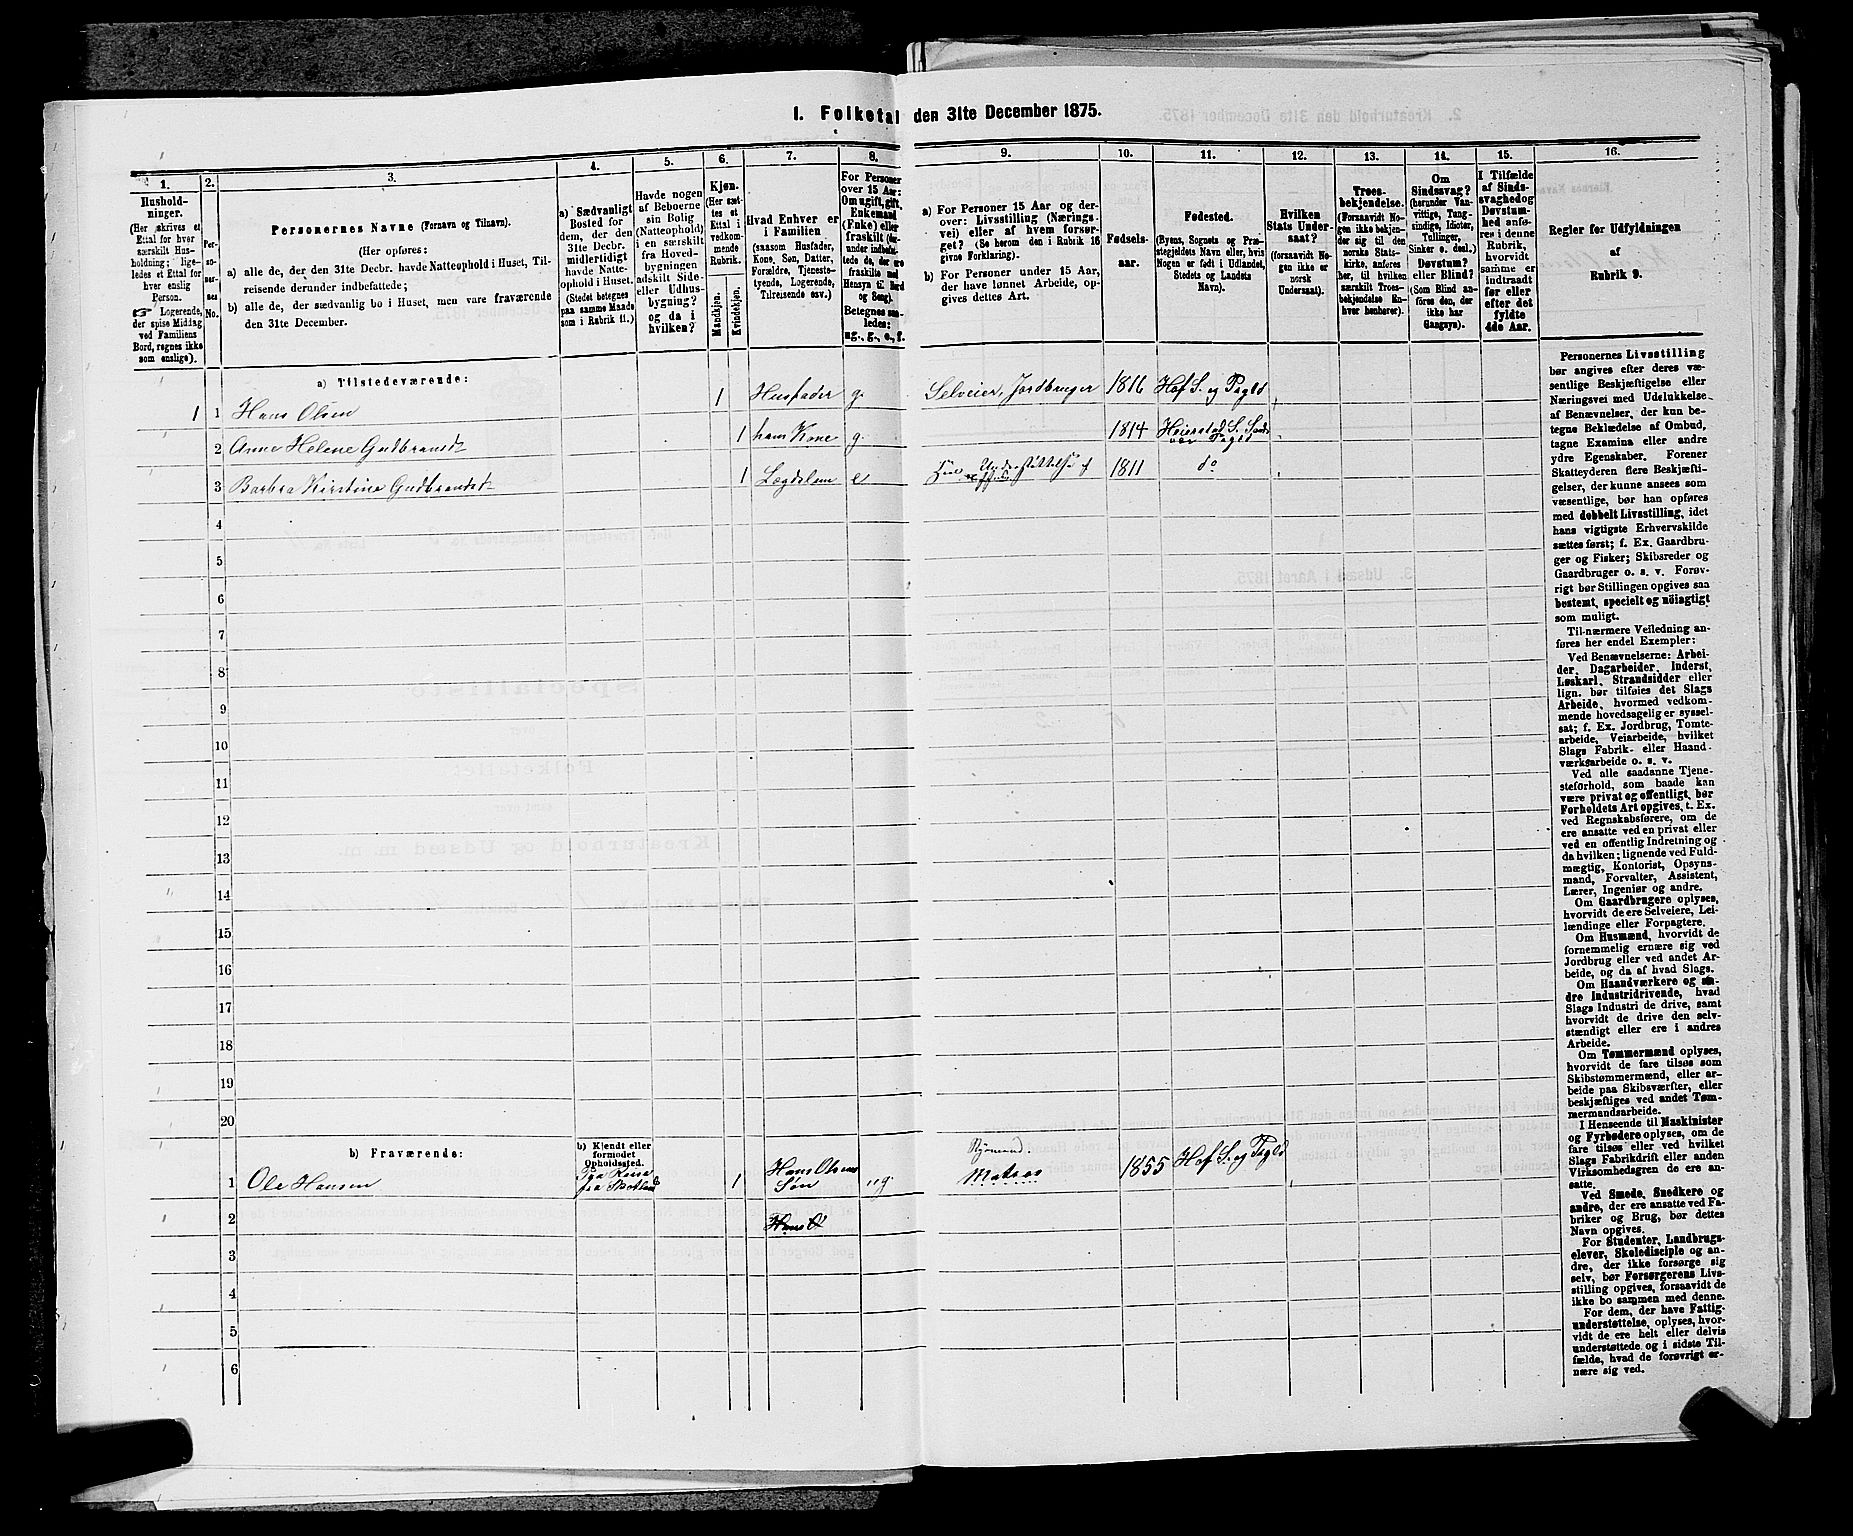 I. Folketal den 31te December 1875.
1.
2.
3.
4.
5.
6.
7.
8.
9.
10.
11.
12.
13.
14.
15.
16.
Hushold-
ninger.
(Her skrives et
Ettal for hver
særskilt Hus-
holdning; lige-
ledes et Ettal for
hver enslig
Person.
☞ Logerende,
der spise Middag
ved Familiens
Bord, regnes ikke
som enslige).
Per-
so-
ner-
nes
No.
Personernes Navne (Fornavn og Tilnavn).
(Her opføres:
a) alle de, der den 31te Decbr. havde Natteophold i Huset, Til-
reisende derunder indbefattede;
b) alle de, der sædvanlig bo i Huset, men vare fraværende
den 31te December.
a) Sædvanligt
Bosted for
dem, der den
31te Decbr.
midlertidigt
havde Natte-
ophold i Huset.
(Stedet betegnes
paa samme Maade
som i Rubrik 11.)
Havde nogen
af Beboerne
sin Bolig
(Natteophold)
i en særskilt
fra Hoved-
bygningen
adskilt Side-
eller Udhus-
bygning?
og da i
hvilken?
Kjøn.
(Her sæt-
tes et
Ettal i
vedkom-
mende
Rubrik.
Mandkjøn.
Kvindekjøn.
Hvad Enhver er
i Familien
(saasom Husfader,
Kone, Søn, Datter,
Forældre, Tjeneste-
tyende, Logerende,
Tilreisende osv.)
For Personer
over 15 Aar:
Om ugift, gift,
Enkemand
(Enke) eller
fraskilt
Betegnes saa-
ledes:
ug., g., e., f.
a) For Personer 15 Aar og der-
over: Livsstilling (Nærings-
vei) eller af hvem forsør-
get? (Se herom den i Rubrik 16
givne Forklaring).
b) For Personer under 15 Aar,
der have lønnet Arbeide, op-
gives dettes Art.
Fødsels-
aar.
Fødested.
(Byens, Sognets og Præ-
stegjeldets Navn eller, hvis
Nogen er født i Udlandet,
Stedets og Landets
Navn).
Hvilken
Stats Under-
saat?
(forsaavidt No-
gen ikke er
norsk
Undersaat).
Troes-
bekjendelse.
(Forsaavidt No-
gen ikke bekjen-
der sig til den
norske Stats-
kirke, anføres
her, til hvilken
særskilt Troes-
bekjendelse En-
hver henhører).
Om
Sindssvag?
(herunder Van-
vittige, Tung-
sindige, Idioter,
Tullinger,
Sinker o. desl.)
Døvstum?
eller Blind?
(Som Blind an-
føres den, der
ikke har
Gangsyn).
I Tilfælde
af Sinds-
svaghed og
Døvstum-
hed anfø-
res i denne
Rubrik,
hvorvidt
samme er
indtraadt
før eller
efter det
fyldte
4de Aar.
Regler for Udfyldningen
af
Rubrik 9.
a) Tilstedeværende:
1 1 Hans Olsen 1 Husfader g. Selveier, Jordbruger 1816 Hof S. og Pgld
2 Anne Helene Gudbrandsdt 1 hans Kone g. 1814
3 Barbra Kirstine Gudbrandsdt 1 Lægdslem e 1811 do
4
5
6
7
8
9
10
11
12
13
14
15
16
17
18
19
20
b) Fraværende:
b) Kjendt eller
formodet
Opholdssted.
1 Ole Hansen Paa Reise
fra Skotland 1 Hans Olsens
Søn ug. Sjømand.
Matros 1855 Hof S. og Pgld
2 Hans O
3
4
5
6
Personernes Livsstilling
bør angives efter deres væ-
sentlige Beskjæftigelse eller
Næringsvei med Udelukkelse
af Benævnelser, der kun be-
tegne Beklædelse af Ombud,
tagne Examina eller andre
ydre Egenskaber. Forener
Skatteyderen flere Beskjæfti-
gelser, der kunne ansees som
væsentlige, bør han opføres
med dobbelt Livsstilling, idet
hans vigtigste Erhvervskilde
sættes først; f. Ex. Gaardbru-
ger og Fisker; Skibsreder og
Gaardbruger o. s. v. Forøv-
rigt bør Stillingen opgives saa
bestemt, specielt og nöiagtigt
som muligt.
Til nærmere Veiledning an-
føres her endel Exempler:
Ved Benævnelserne: Arbei-
der, Dagarbeider, Inderst,
Løskarl, Strandsidder eller
lign. bør tilføies det Slags
Arbeide, hvormed vedkom-
mende hovedsagelig er syssel-
sat; f. Ex. Jordbrug, Tomte-
arbeide, Veiarbeide, hvilket
Slags Fabrik- eller Haand-
værksarbeide o. s. v.
Ved alle saadanne Tjene-
steforhold, som baade kan
være privat og offentligt, bør
Forholdets Art opgives, t. Ex.
ved Regnskabsførere, om de
ere ansatte ved en privat eller
ved en offentlig Indretning og
da hvilken; lignende ved Fuld-
mægtig, Kontorist, Opsyns-
mand, Forvalter, Assistent,
Lærer, Ingeniør og andre.
Om Gaardbrugere oplyses,
hvorvidt de ere Selveiere, Lei-
lændinge eller Forpagtere.
Om Husmænd, hvorvidt de
fornemmelig ernære sig ved
Jordbrug eller ved andet Ar-
beide, og da af hvad Slags.
Om Haandværkere og an-
dre Industridrivende, hvad
Slags Industri de drive, samt
hvorvidt de drive den selv-
stændigt eller ere i andres
Arbeide.
Om Tømmermænd oplyses,
hvorvidt de fare tilsøs som
Skibstømmermænd, eller ar-
beide paa Skibsværfter, eller
beskjæftiges ved andet Tøm-
mermandsarbeide.
I Henseende til Maskinister
og Fyrbødere oplyses, om de
fare tilsøs eller ved hvilket
Slags Fabrikdrift eller anden
Virksomhedsgren de ere an-
satte.
Ved Smede, Snedkere og
andre, der ere ansatte ved Fa-
briker og Brug, bør dettes
Navn opgives.
For Studenter, Landbrugs-
elever, Skoledisciple og an-
dre, der ikke forsørge sig
selv, bør Forsørgerens Livs-
stilling opgives, forsaavidt de
ikke bo sammen med denne.
For dem, der have Fattig-
understøttelse, oplyses, hvor-
vidt de ere helt eller delvis
understøttede og i sidste Til-
fælde, hvad de forøvrigt er-
nære sig ved.